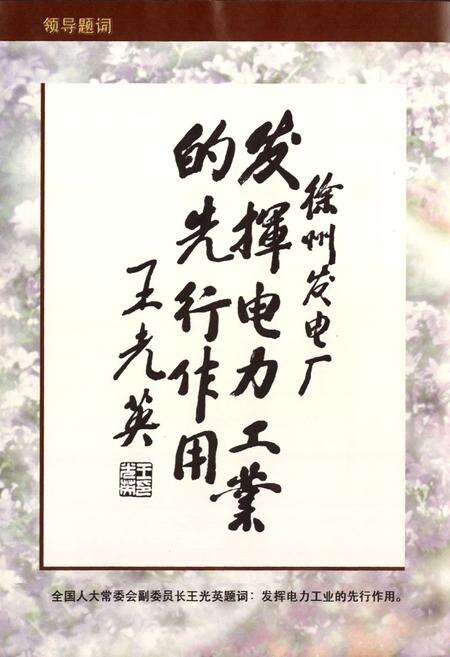 领导题词
徐州发电厂
发揮电力工業
的先行作用
王光英
全国人大常委会副委员长王光英题词：发挥电力工业的先行作用。